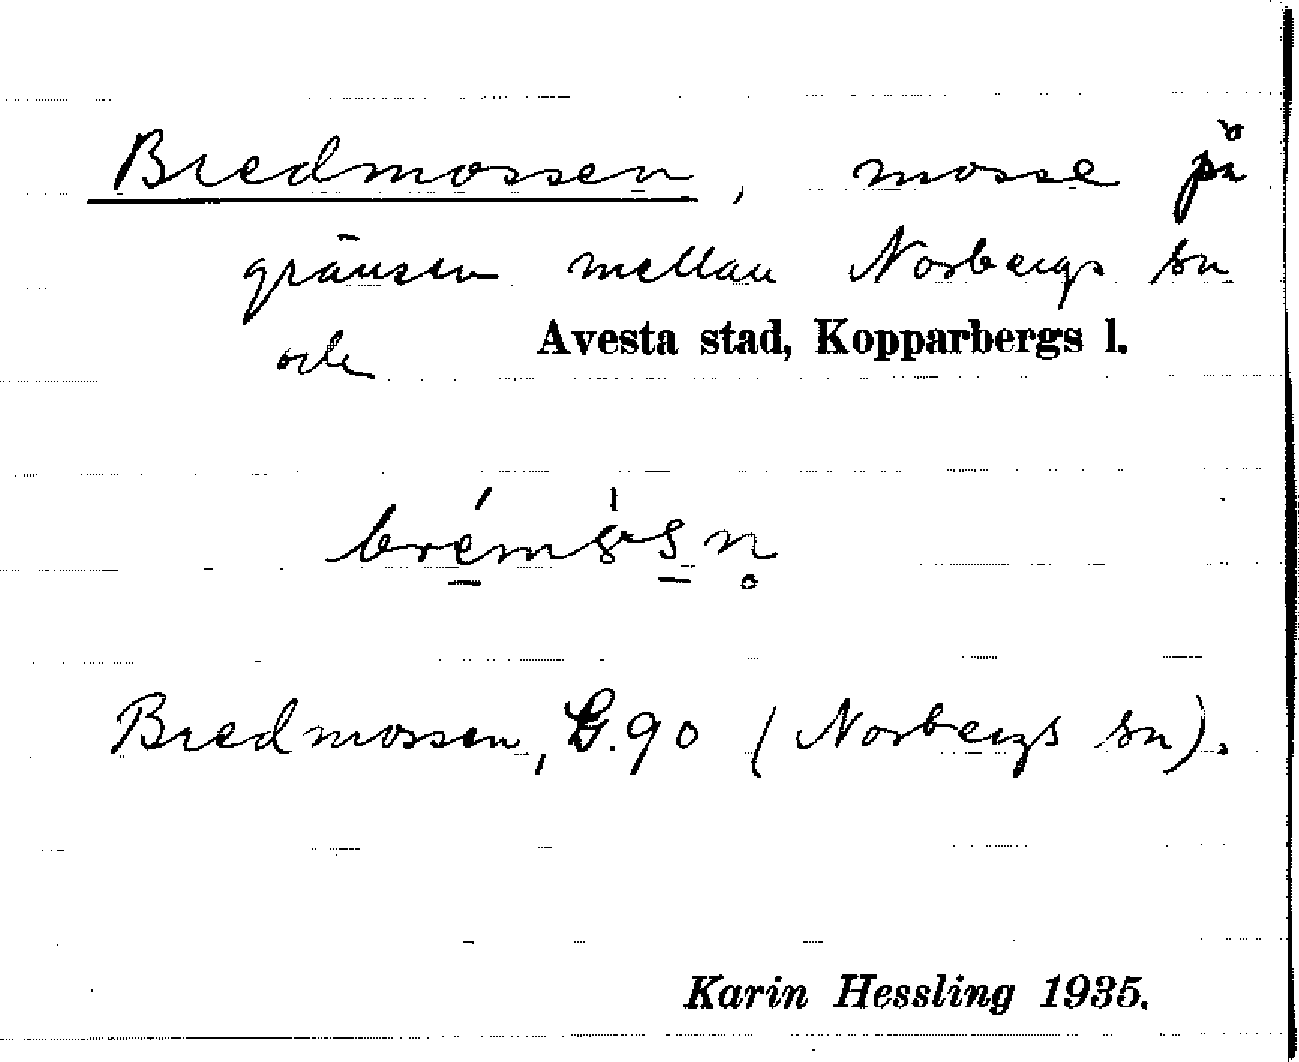 Bredmossen, mosse på
gränsen mellan Norbergs sn
och Avesta stad, Kopparbergs l.
Bredmossen, G.90 (Norbergs sn).
Karin Hessling 1935.